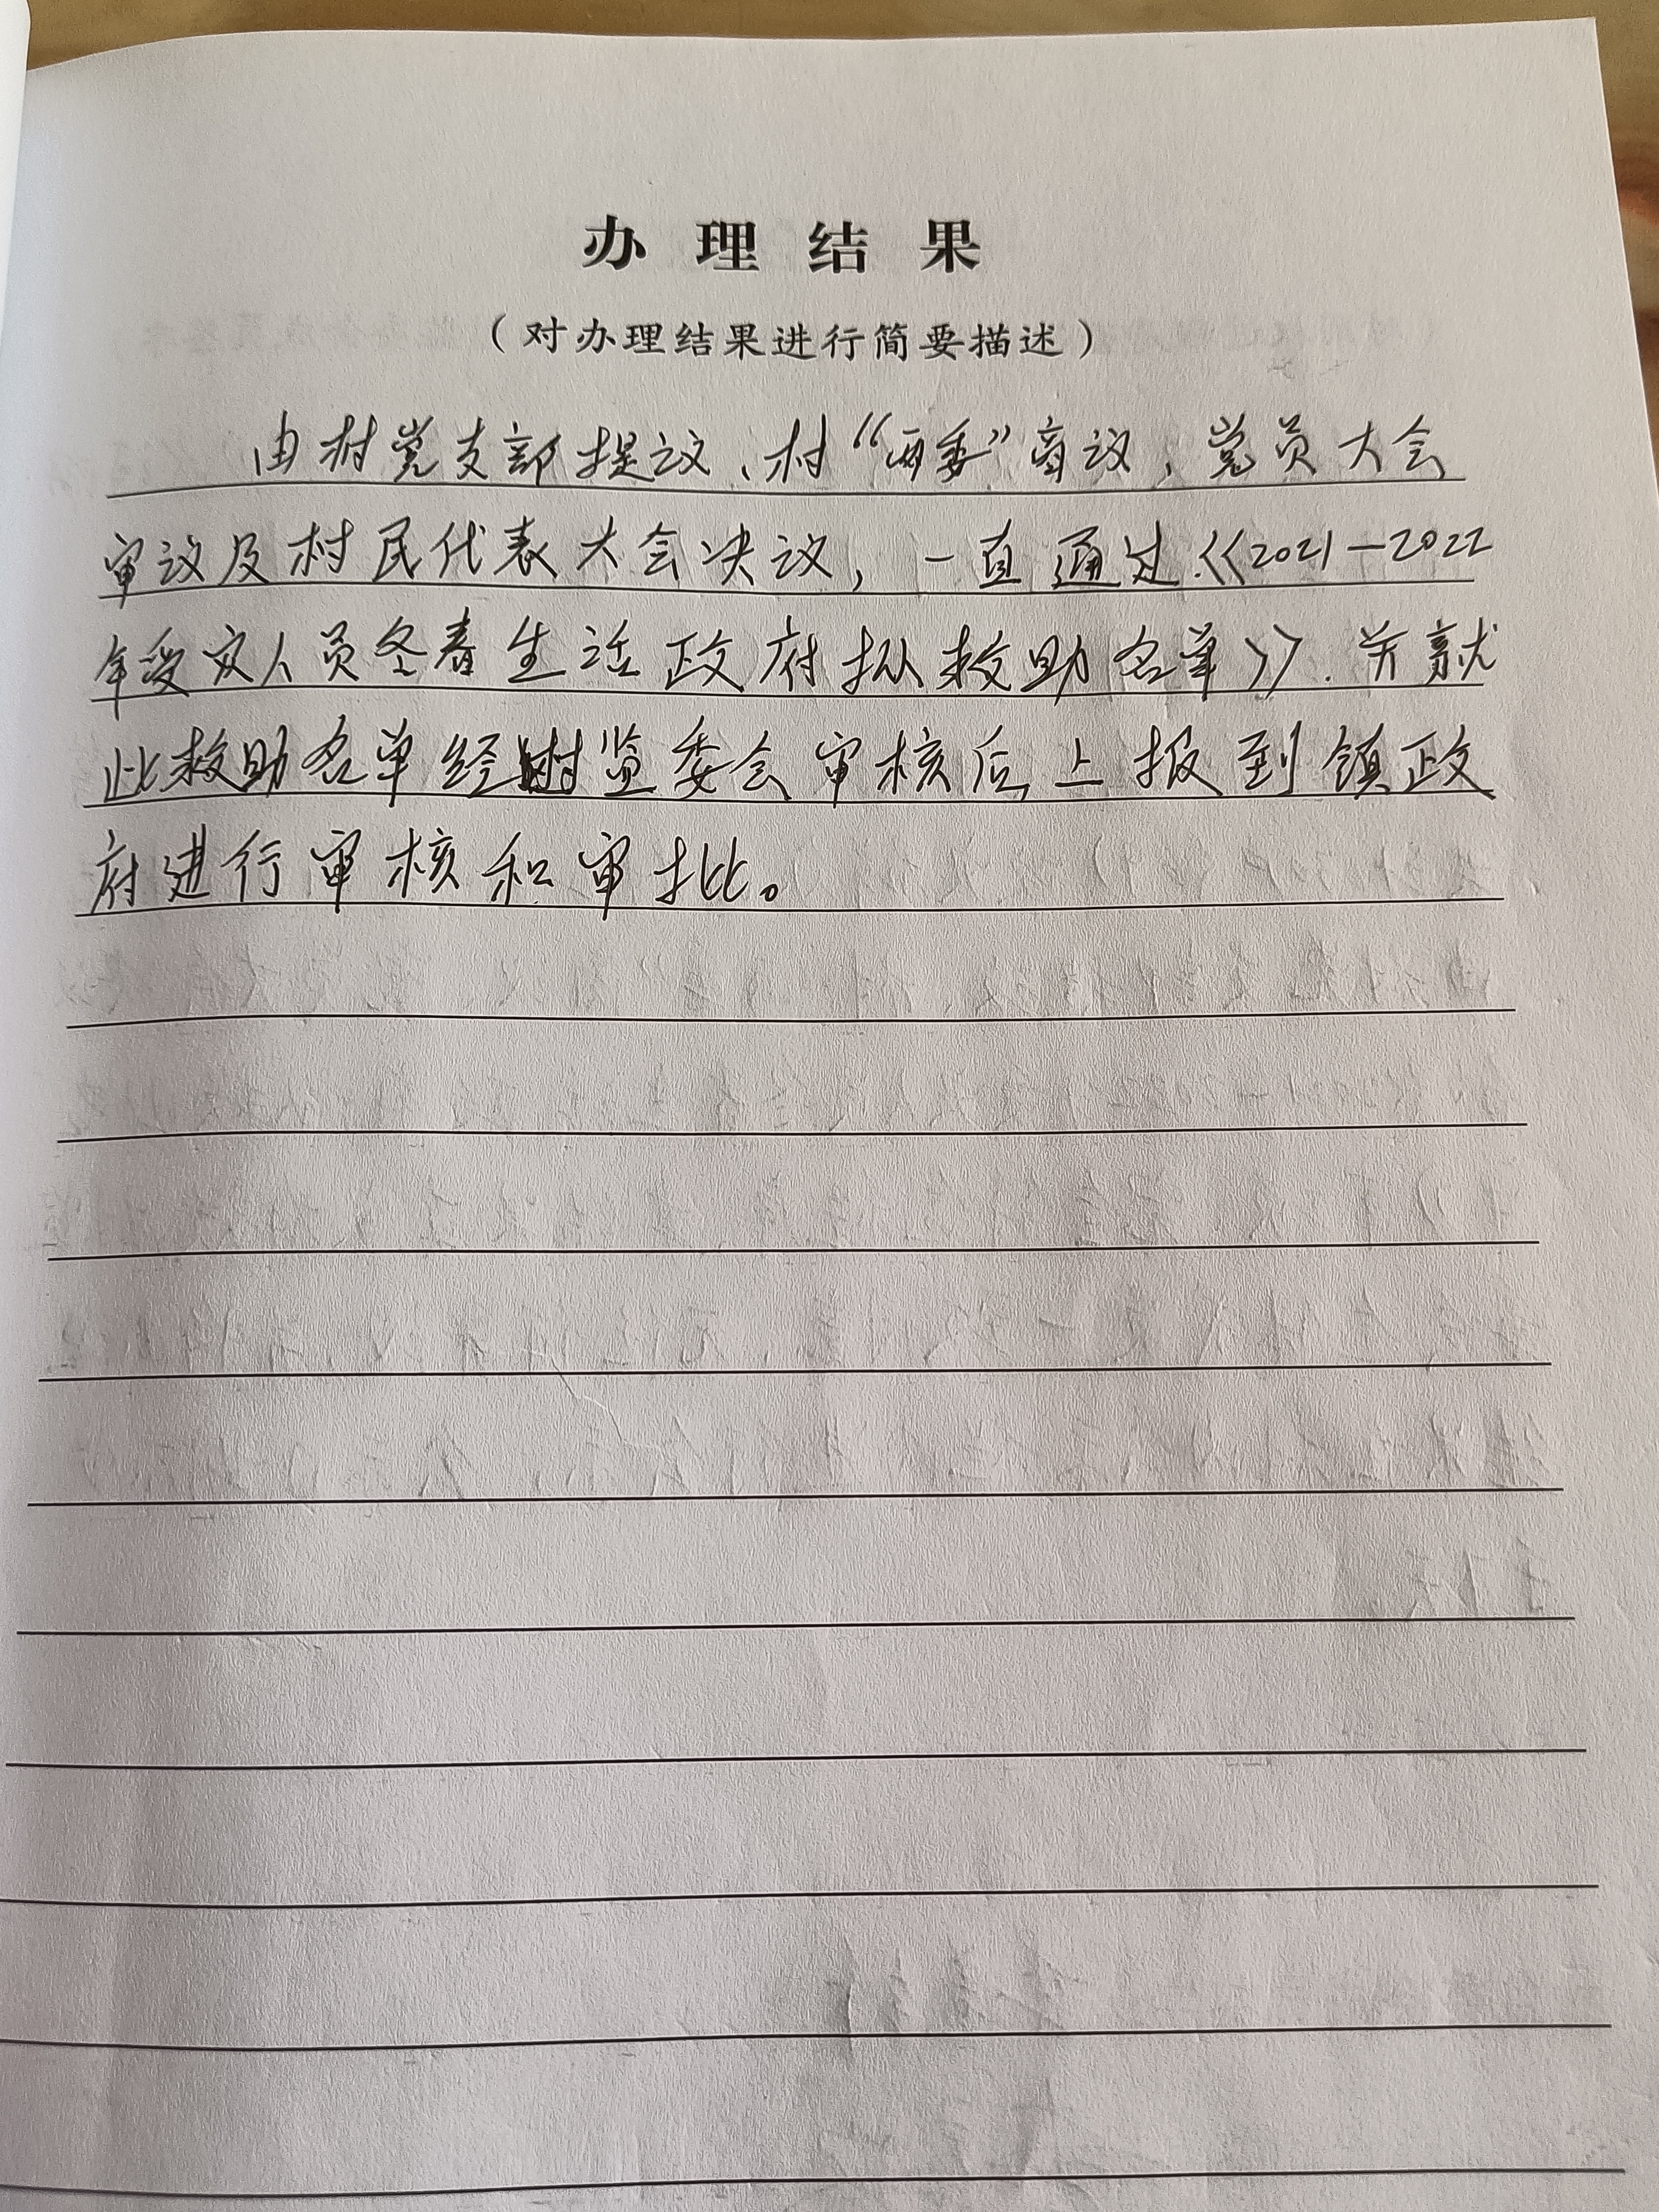 办理结果
（对办理结果进行简要描述）
由村党支部提议、村“两委”商议，党员大会
审议及村民代表大会决议，一直通过《2021—2022
年受灾人员冬春生活政府拟救助名单》.并就
此救助名单经村监委会审核后上报到镇政
府进行审核和审批。